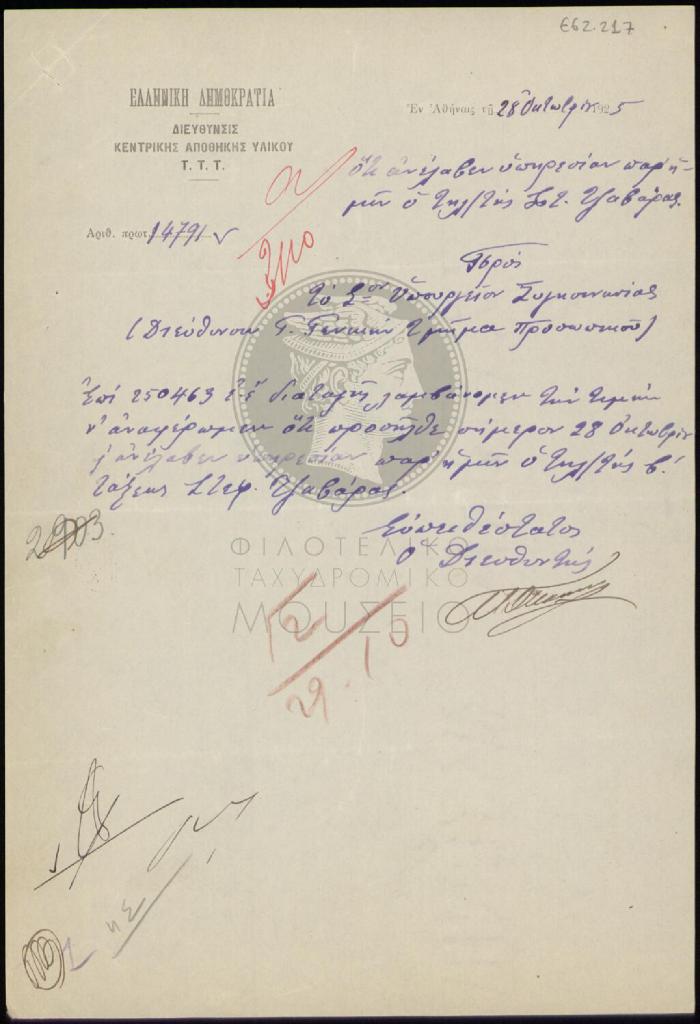 Ε62.217
ΕΛΛΗΝΙΚΗ ΔΗΜΟΚΡΑΤΙΑ
ΔΙΕΥΘΥΝΣΙΣ
ΚΕΝΤΡΙΚΗΣ ΑΠΟΘΗΚΗΣ ΥΛΙΚΟΥ
Τ. Τ. Τ.
Ἐν Ἀθήναις τῇ 28 Ὀκτωβρίου 1925
Ἀριθ. πρωτ. 14791
ὅτι ἀνέλαβεν ὑπηρεσίαν παρ' ἡ-
μῖν ὁ τηλ/τής Στ. Τζαβάρας.
Πρός
τὸ Σον Ὑπουργεῖον Συγκοινωνίας
(Διεύθυνσιν Τ. Γενικὴν Τμῆμα Προσωπικοῦ)
Ἐπί 250463 ἐ.ἔ. διαταγῆς λαμβάνομεν τὴν τιμὴν
ν' ἀναφέρωμεν ὅτι προσῆλθε σήμερον 28 Ὀκτωβρίου
κ' ἀνέλαβεν ὑπηρεσίαν παρ' ἡμῖν ὁ τηλ/τής β'.
τάξεως Στεφ. Τζαβάρας.
Εὐπειθέστατος
Ὁ Διευθυντής
ΦΙΛΟΤΕΛΙΚΟ
ΤΑΧΥΔΡΟΜΙΚΟ
ΜΟΥΣΕΙΟ
29.10